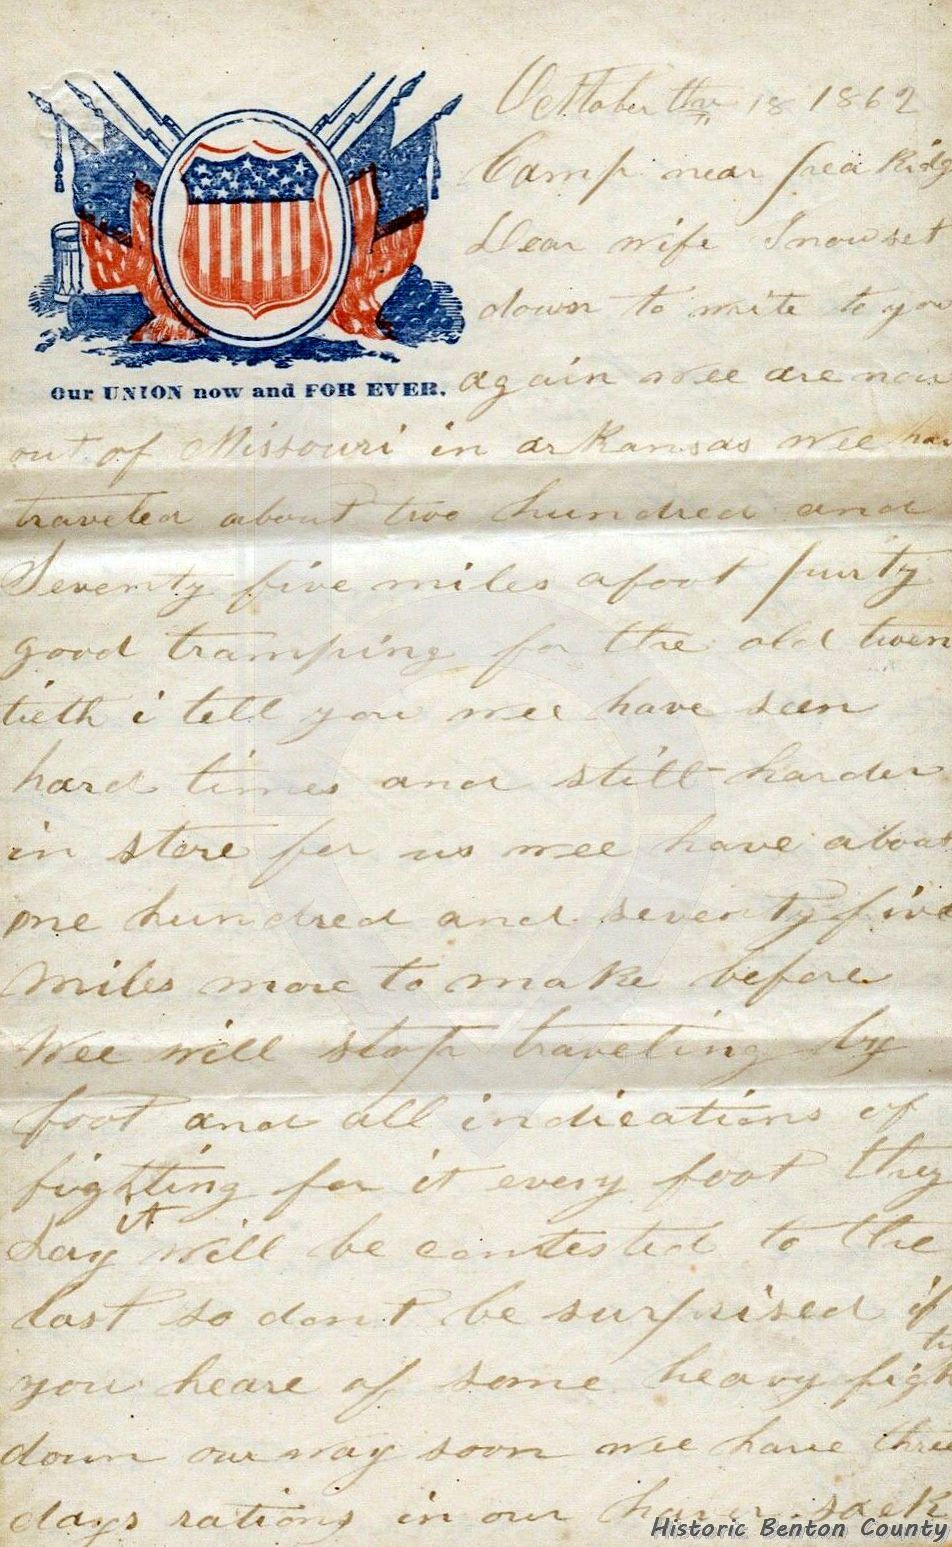 Octtober the 18 1862
Camp near prea Ridg
Dear wife I now set
down to write to yo
again wee are now
Our UNION now and FOR EVER.
out of Missouri in arkansas wee hav
traveled about two hundred and
Seventy five miles afoot purty
good tramping for the old twen
tieth i tell you wee have seen
hard times and still harder
in store for us wee have about
one hundred and seventy five
miles more to make before
Wee will stop traveling by
foot and all indications of
fighting for it every foot they
Say it will be contested to the
last so dont be surprised if
you heare of some heavy fighting
down our way soon wee have three
days rations in our haver sack
Historic Benton County